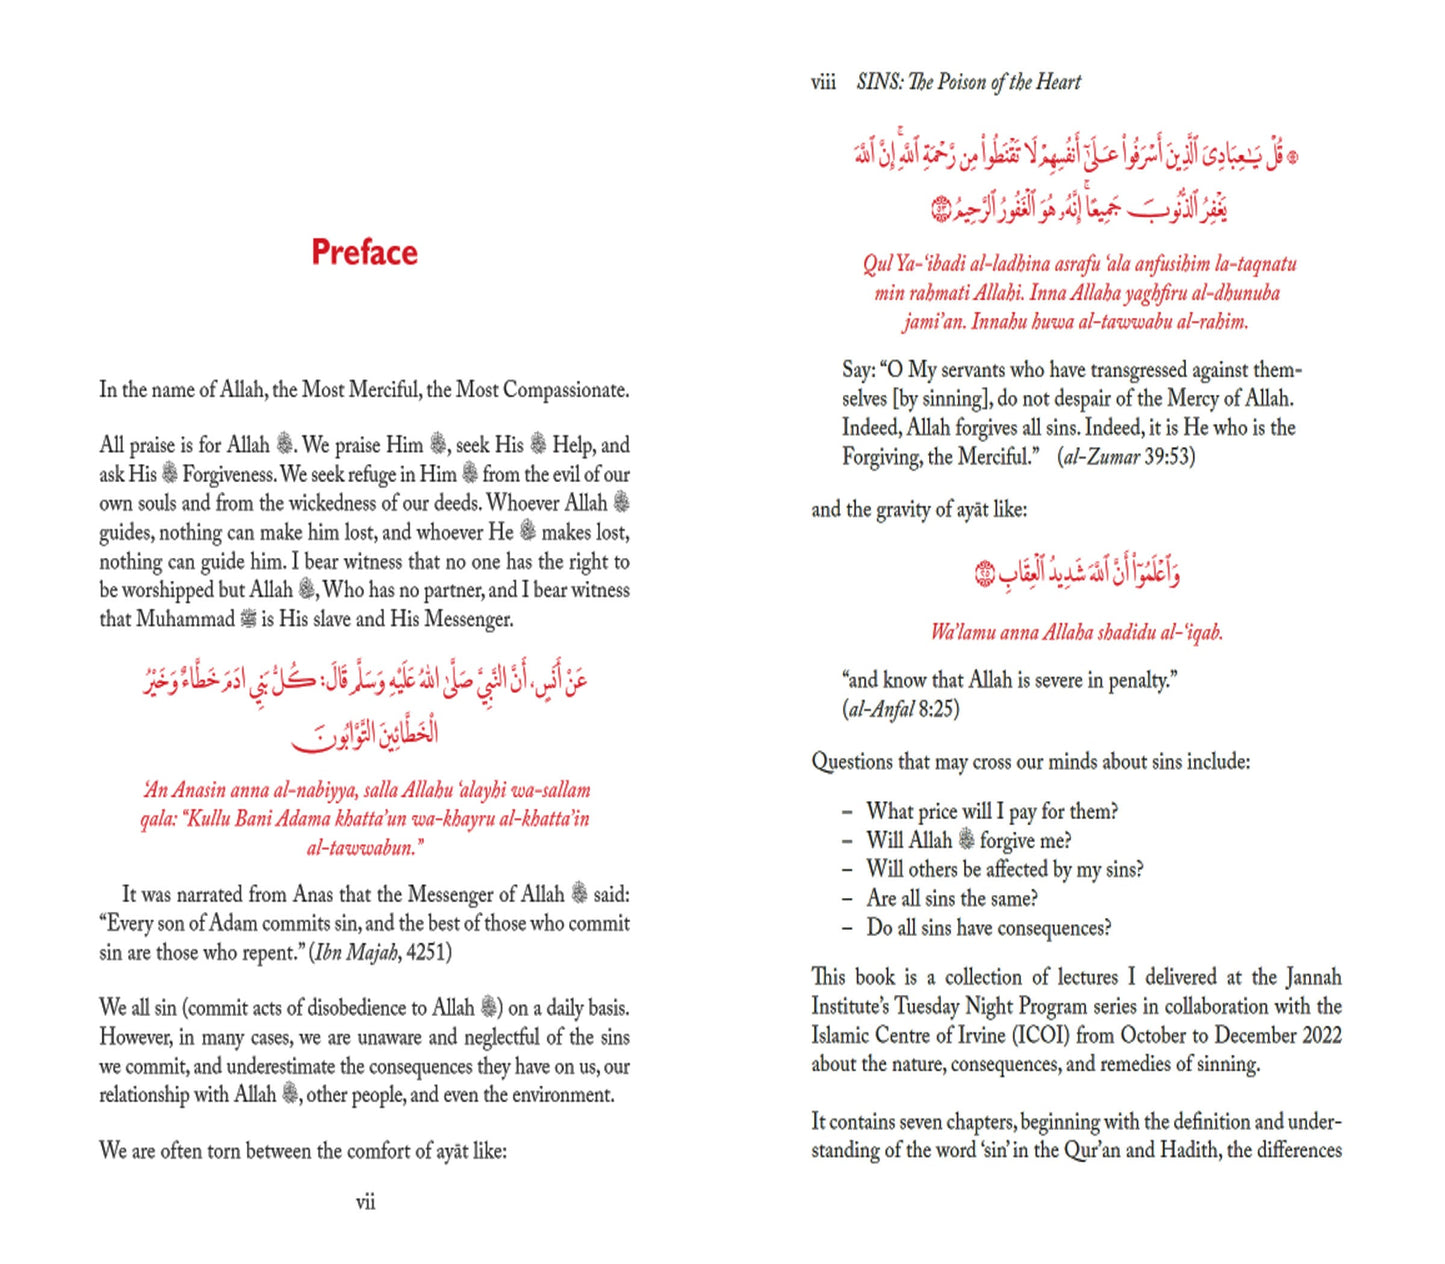 Preface
In the name of Allah, the Most Merciful, the Most Compassionate.
All praise is for Allah ﷻ. We praise Him ﷻ, seek His ﷻ Help, and
ask His ﷻ Forgiveness. We seek refuge in Him ﷻ from the evil of our
own souls and from the wickedness of our deeds. Whoever Allah ﷻ
guides, nothing can make him lost, and whoever He ﷻ makes lost,
nothing can guide him. I bear witness that no one has the right to
be worshipped but Allah ﷻ, Who has no partner, and I bear witness
that Muhammad ﷺ is His slave and His Messenger.
عَنْ أَنَسٍ، أَنَّ النَّبِيَّ صَلَّى اللهُ عَلَيْهِ وَسَلَّمَ قَالَ: كُلُّ بَنِي ادَمَ خَطَّاءٌ وَخَيْرُ
الْخَطَّائِينَ التَّوَّابُونَ
‘An Anasin anna al-nabiyya, salla Allahu ‘alayhi wa-sallam
qala: “Kullu Bani Adama khatta’un wa-khayru al-khatta’in
al-tawwabun.”
It was narrated from Anas that the Messenger of Allah ﷻ said:
“Every son of Adam commits sin, and the best of those who commit
sin are those who repent.” (Ibn Majah, 4251)
We all sin (commit acts of disobedience to Allah ﷻ) on a daily basis.
However, in many cases, we are unaware and neglectful of the sins
we commit, and underestimate the consequences they have on us, our
relationship with Allah ﷻ, other people, and even the environment.
We are often torn between the comfort of ayāt like:
vii
viii SINS: The Poison of the Heart
۞ قُلْ يَـٰعِبَادِىَ ٱلَّذِينَ أَسْرَفُوا۟ عَلَىٰٓ أَنفُسِهِمْ لَا تَقْنَطُوا۟ مِن رَّحْمَةِ ٱللَّهِ ۚ إِنَّ ٱللَّهَ
يَغْفِرُ ٱلذُّنُوبَ جَمِيعًا ۚ إِنَّهُۥ هُوَ ٱلْغَفُورُ ٱلرَّحِيمُ ۝٥٣
Qul Ya-‘ibadi al-ladhina asrafu ‘ala anfusihim la-taqnatu
min rahmati Allahi. Inna Allaha yaghfiru al-dhunuba
jami’an. Innahu huwa al-tawwabu al-rahim.
Say: “O My servants who have transgressed against them-
selves [by sinning], do not despair of the Mercy of Allah.
Indeed, Allah forgives all sins. Indeed, it is He who is the
Forgiving, the Merciful.” (al-Zumar 39:53)
and the gravity of ayāt like:
وَٱعْلَمُوٓا۟ أَنَّ ٱللَّهَ شَدِيدُ ٱلْعِقَابِ ۝٢٥
Wa’lamu anna Allaha shadidu al-‘iqab.
“and know that Allah is severe in penalty.”
(al-Anfal 8:25)
Questions that may cross our minds about sins include:
– What price will I pay for them?
– Will Allah ﷻ forgive me?
– Will others be affected by my sins?
– Are all sins the same?
– Do all sins have consequences?
This book is a collection of lectures I delivered at the Jannah
Institute’s Tuesday Night Program series in collaboration with the
Islamic Centre of Irvine (ICOI) from October to December 2022
about the nature, consequences, and remedies of sinning.
It contains seven chapters, beginning with the definition and under-
standing of the word ‘sin’ in the Qur’an and Hadith, the differences